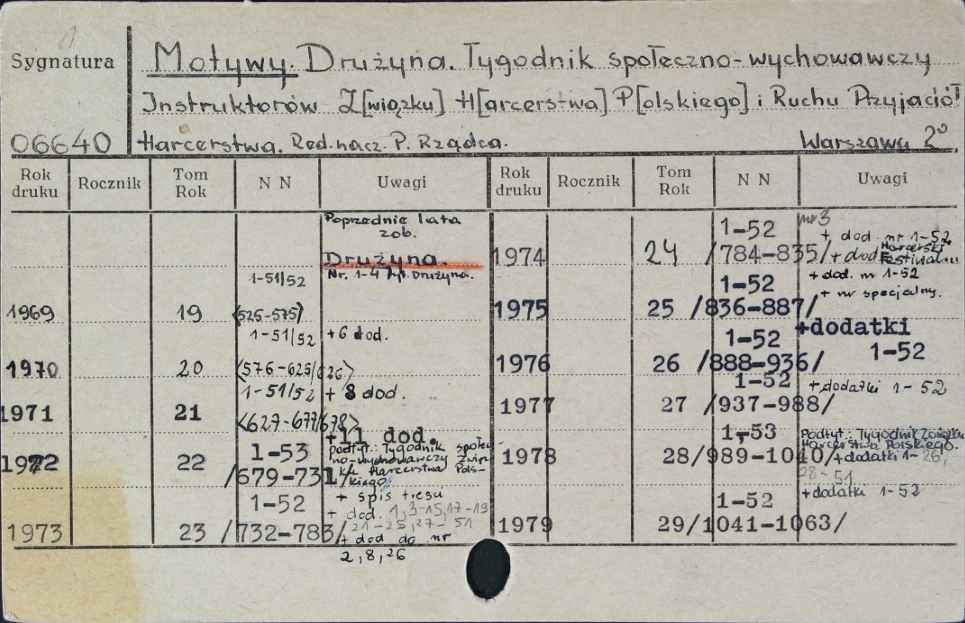 Sygnatura
Motywy. Drużyna. Tygodnik społeczno-wychowawczy
Instruktorów Z[wiązku] H[arcerstwa] P[olskiego] i Ruchu Przyjaciół
06640 Harcerstwa. Red. nacz. P. Rządca. Warszawa 2°
Rok druku Rocznik Tom Rok N N Uwagi Rok druku Rocznik Tom Rok N N Uwagi
Poprzednie lata
zob.
Drużyna.
Nr. 1-4 tyt. Drużyna.
1-51/52
1969 19 (526-575)
1-51/52 +6 dod.
1970 20 <576-625/626>
1-51/52 + 8 dod.
1971 21 <627-677/678>
+11 dod.
1-53 podtyt.: Tygodnik społecz-
no-wychowawczy Związ-
ku Harcerstwa Pols-
kiego
1972 22 /679-731/
1-52 + spis treści
+ dod. 1,3-15,17-19
21-25,27-51
1973 23 /732-783/ + dod do nr
2,8,26
1-52 nr 3
+ dod. nr 1-52
1974 24 /784-835/ + dod Harcerski
Festiwalu
1-52 + dod. nr 1-52
1975 25 /836-887/ + nr specjalny.
1-52 +dodatki
1-52
1976 26 /888-936/
1-52 + dodatki 1-52
1977 27 /937-988/
1-53 Podtyt.: Tygodnik Związku
Harcerstwa Polskiego.
1978 28/989-1040/ +dodatki 1-26,
28-51
1-52 +dodatki 1-52
1979 29/1041-1063/